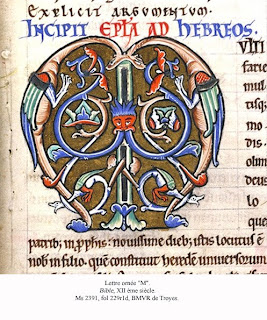 Explicit argumentum.
INCIPIT EPLA AD HEBREOS.
VLTI
farie
mul
tisq;
mo
dis.
olim
deus
loque
patrib; in pphis: nouissime dieb; istis locutus e
nob in filio. que constituit herede uniuersorum
Lettre ornée "M".
Bible, XII ème siècle.
Ms 2391, fol 229r1d, BMVR de Troyes.